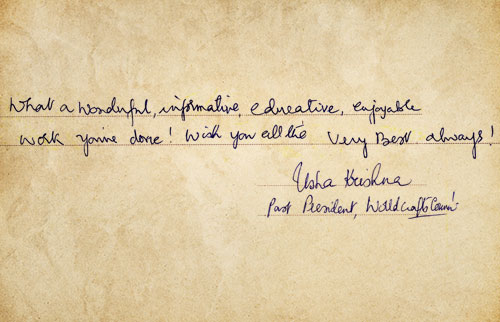 What a wonderful, informative, educative, enjoyable
work you've done! Wish you all the Very Best always!
Usha Krishna
Past President, World Crafts Council